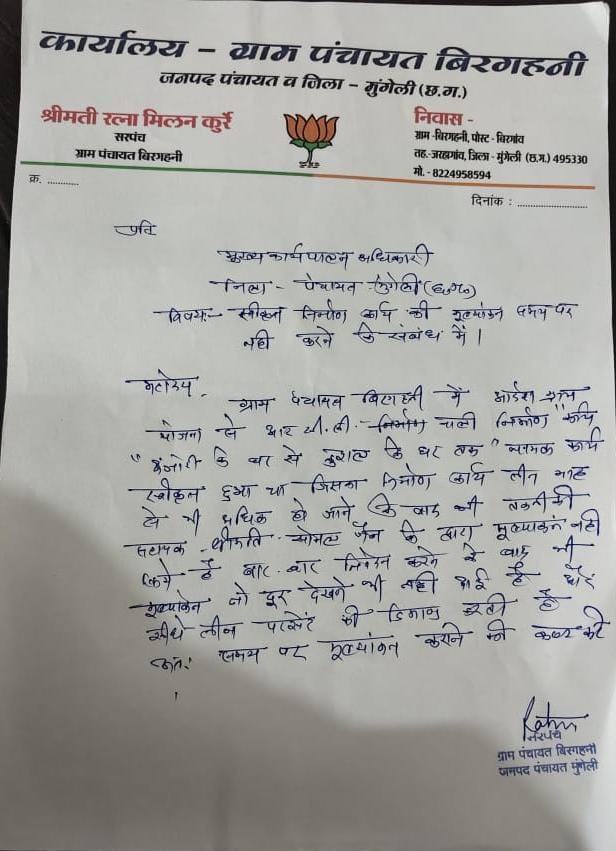 कार्यालय - ग्राम पंचायत बिरगहनी
जनपद पंचायत व जिला - मुंगेली (छ.ग.)
श्रीमती रत्ना मिलन कुर्रे
सरपंच
ग्राम पंचायत बिरगहनी
निवास -
ग्राम -बिरगहनी, पोस्ट - बिरगांव
तह.-जरहागांव, जिला - मुंगेली (छ.ग.) 495330
मो. - 8224958594
क्र. ............
दिनांक : ......................
प्रति
मुख्य कार्यपालन अधिकारी
जिला - पंचायत मुंगेली (छ०ग०)
विषय:- स्वीकृत निर्माण कार्य की मूल्यांकन समय पर
नही करने कि संबंध में।
महोदय,
ग्राम पंचायत बिरगहनी में आदर्श ग्राम
योजना से आर.सी.सी. निर्माण नाली निर्माण कार्य
" कि घर से कि घर तक " नामक कार्य
स्वीकृत हुआ था जिसका निर्माण कार्य तीन माह
से भी अधिक हो जाने कि बाद भी तकनीकी
सहायक श्रीमति जैन कि द्वारा मूल्यांकन नही
किये है बार-बार निवेदन करने के बाद भी
मूल्यांकन तो दूर देखने भी नही आई है और
सीधे तीन परसेंट की डिमांड करती है
अतः समय पर मूल्यांकन कराने की करे
।
सरपंच
ग्राम पंचायत बिरगहनी
जनपद पंचायत मुंगेली